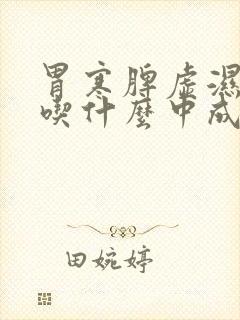 胃寒脾虚濕
喫什麼中成
田婉婷